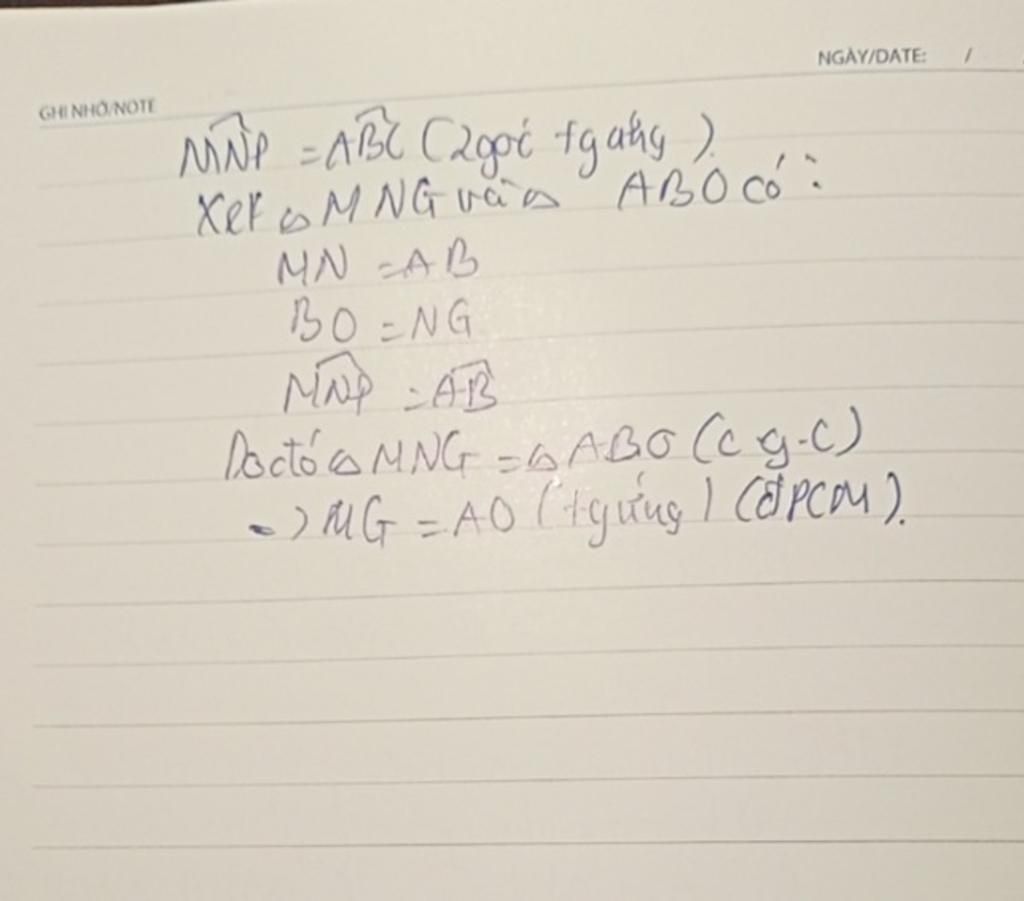 NGÀY/DATE: /
GHI NHỚ/NOTE
MNP = ABC (2 góc tg ứng).
Xét △ MNG và △ ABO có:
MN = AB
BO = NG
MNP = AB
Do đó △ MNG = △ ABO (c g-c)
=) MG = AO (tg ứng) (ĐPCM).